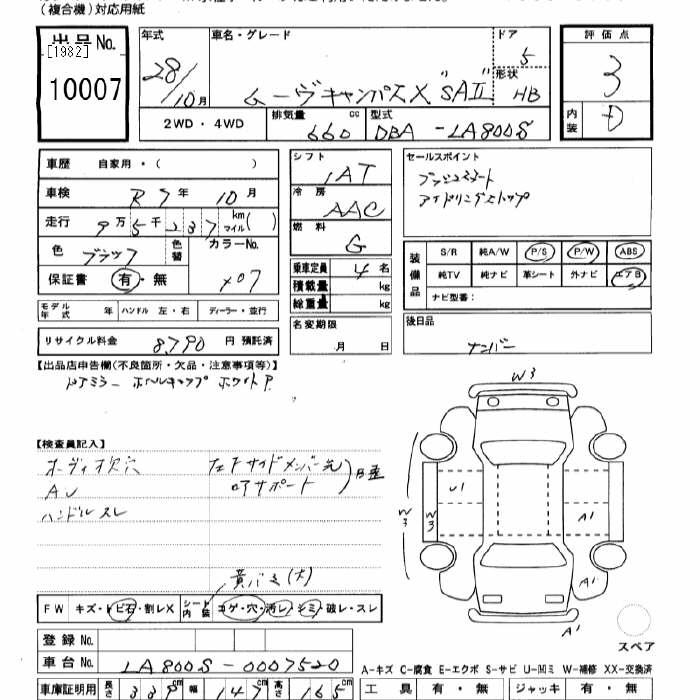 (複合機)対応用紙
出品No. [1982] 10007
年式 28/10月
車名・グレード ムーヴキャンバス X "SAⅡ"
ドア 5
形状 HB
評価点 3
内装 D
2WD・4WD
排気量 660 cc
型式 DBA-LA800S
車歴 自家用・( )
車検 R7年10月
走行 9万5千237 km マイル( )
色 ブラック 色替 カラーNo. X07
保証書 有・無
モデル年式 年 ハンドル 左・右 ディーラー・並行
リサイクル料金 8,790 円 預託済
シフト IAT
冷房 AAC
燃料 G
乗車定員 4名
積載量 kg
総重量 kg
名変期限 月 日
セールスポイント
プッシュスタート
アイドリングストップ
装備品 S/R 純A/W P/S P/W ABS
純TV 純ナビ 革シート 外ナビ エアB
ナビ型番:
後日品
ナンバー
【出品店申告欄(不良箇所・欠品・注意事項等)】
ドアミラー ホイルキャップ ホワイトP.
【検査員記入】
ボディ
AU
ハンドルスレ
左下サイドメンバー先
ロアサポート
黄バミ(大)
FW キズ・トビ石・割レX シート内装 コゲ・穴・汚レ・シミ・破レ・スレ
登録No.
車台No. LA800S-0007520
車庫証明用 長さ 339cm 幅 147cm 高さ 165cm
W3
U1
W3
W3
A1
A1
A1
スペア
A-キズ C-腐食 E-エクボ S-サビ U-凹ミ W-補修 XX-交換済
工具 有・無 ジャッキ 有・無